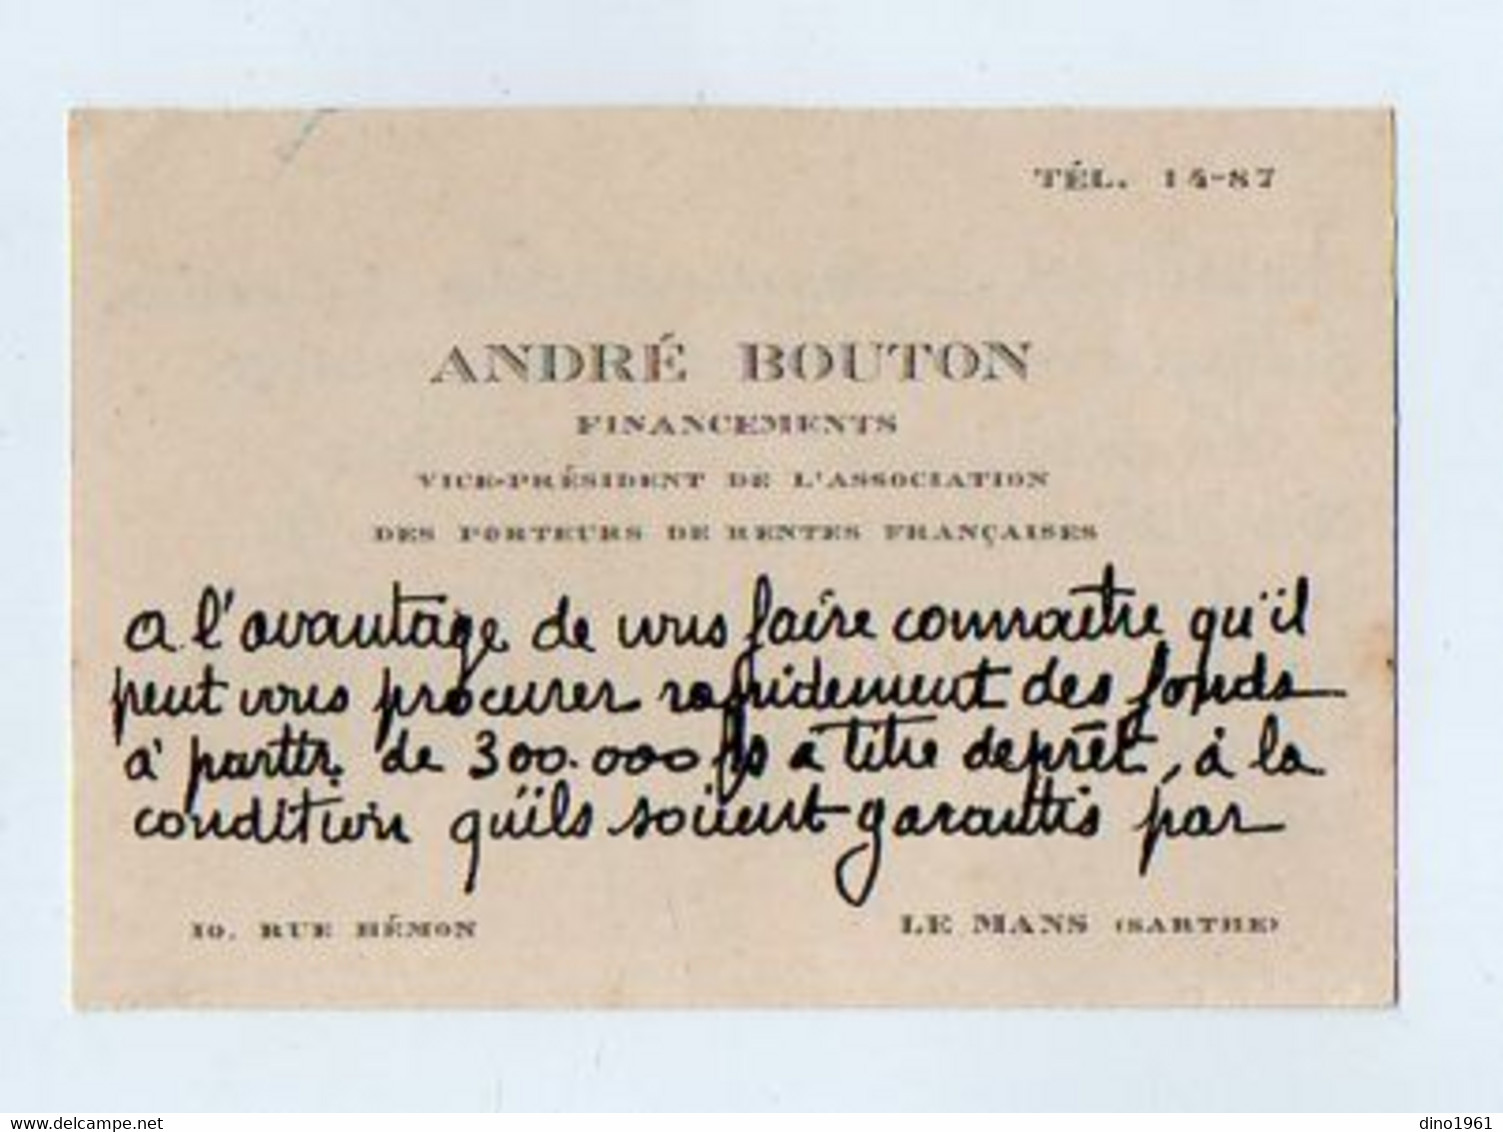 TÉL. 14-87
ANDRÉ BOUTON
FINANCEMENTS
VICE-PRÉSIDENT DE L'ASSOCIATION
DES PORTEURS DE RENTES FRANÇAISES
a l'avantage de vous faire connaître qu'il
peut vous procurer rapidement des fonds
à partir de 300.000 frs à titre de prêt, à la
condition qu'ils soient garantis par
10, RUE HÉMON
LE MANS (SARTHE)
delcampe.net
dino1961